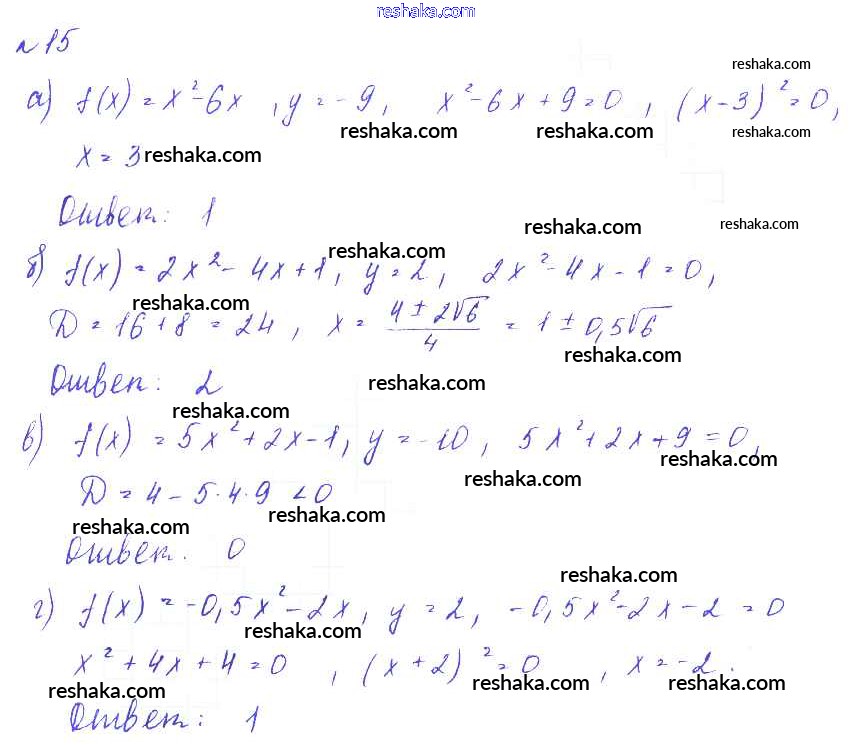 reshaka.com
№15
reshaka.com
а) f(x) = x²-6x , y = -9, x²-6x+9=0 , (x-3)²=0,
reshaka.com reshaka.com reshaka.com
x = 3 reshaka.com
Ответ: 1
reshaka.com reshaka.com
reshaka.com
б) f(x) = 2x²-4x+1, y=2, 2x²-4x-1=0,
reshaka.com
D = 16+8 = 24 , x = (4±2√6)/4 = 1±0,5√6
reshaka.com
Ответ: 2 reshaka.com
reshaka.com
в) f(x) = 5x²+2x-1, y=-10, 5x²+2x+9=0,
reshaka.com
reshaka.com
D = 4-5·4·9 <0
reshaka.com reshaka.com
Ответ. 0
reshaka.com
г) f(x) = -0,5x²-2x, y=2, -0,5x²-2x-2=0
reshaka.com
x²+4x+4=0 , (x+2)²=0 , x=-2.
reshaka.com reshaka.com reshaka.com
Ответ: 1